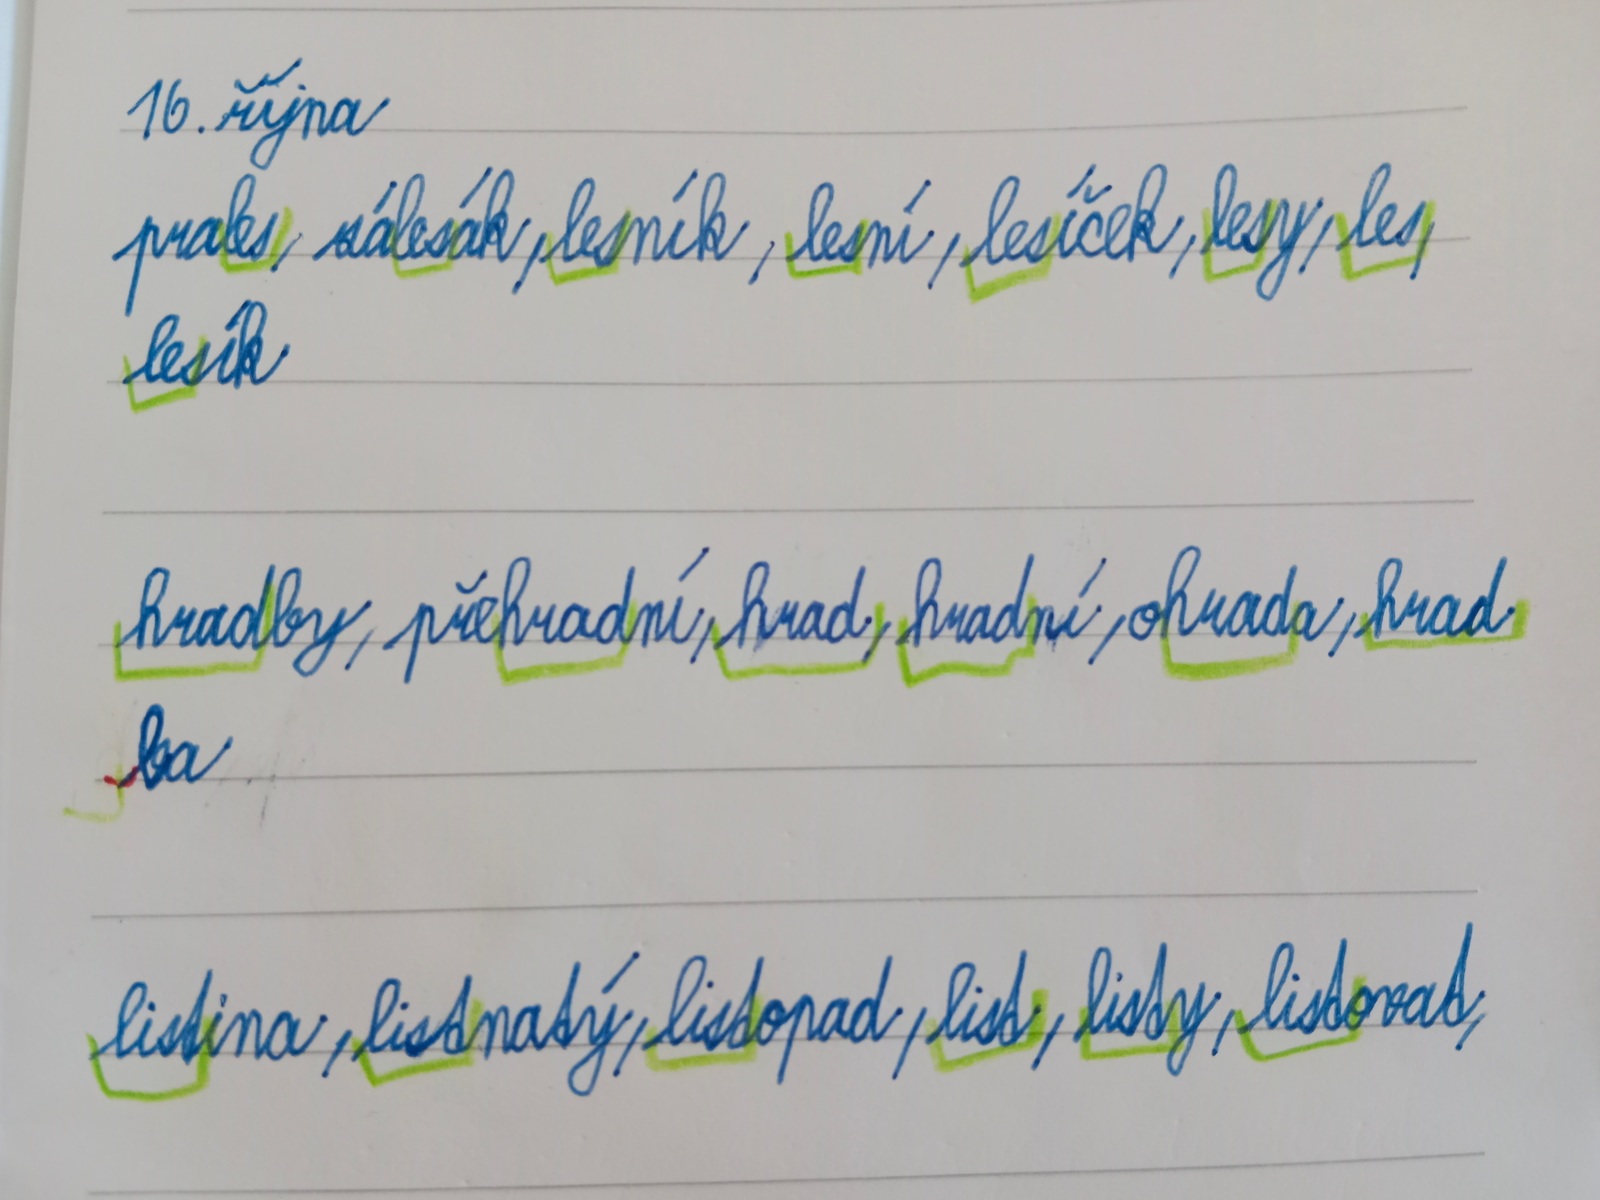 16. října
prales, zálesák, lesník, lesní, lesíček, lesy, les,
lesík
hradby, přehradní, hrad, hradní, ohrada, hrad
ba
listina, listnatý, listopad, list, listy, listovat,